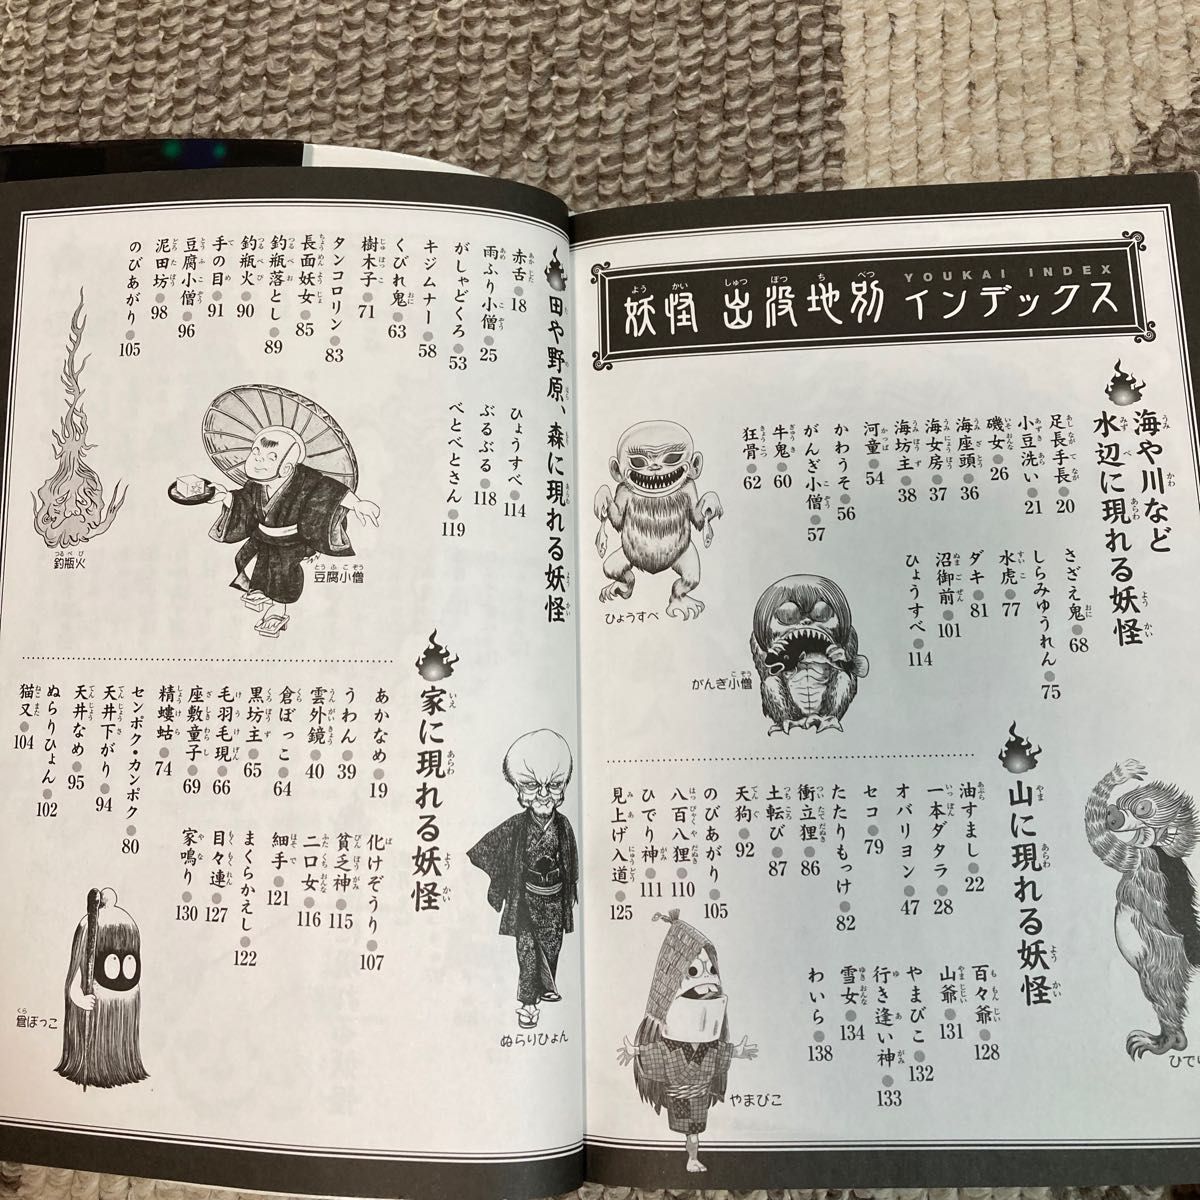 YOUKAI INDEX
妖怪 出没地別 インデックス
海や川など
水辺に現れる妖怪
足長手長●20
小豆洗い●21
磯女●26
海座頭●36
海女房●37
海坊主●38
河童●54
かわうそ●56
がんぎ小僧●57
牛鬼●60
狂骨●62
さざえ鬼●68
しらみゆうれん●75
水虎●77
ダキ●81
沼御前●101
ひょうすべ●114
ひょうすべ
がんぎ小僧
山に現れる妖怪
油すまし●22
一本ダタラ●28
オバリヨン●47
セコ●79
たたりもっけ●82
衝立狸●86
土転び●87
天狗●92
のびあがり●105
八百八狸●110
ひでり神●111
見上げ入道●125
百々爺●128
山爺●131
やまびこ●132
行き逢い神●133
雪女●134
わいら●138
やまびこ
ひでり
田や野原、森に現れる妖怪
赤舌●18
雨ふり小僧●25
がしゃどくろ●53
キジムナー●58
くびれ鬼●63
樹木子●71
タンコロリン●83
長面妖女●85
釣瓶落とし●89
釣瓶火●90
手の目●91
豆腐小僧●96
泥田坊●98
のびあがり●105
ひょうすべ●114
ぶるぶる●118
べとべとさん●119
釣瓶火
豆腐小僧
家に現れる妖怪
あかなめ●19
うわん●39
雲外鏡●40
倉ぼっこ●64
黒坊主●65
毛羽毛現●66
座敷童子●69
精螻蛄●74
センポク・カンポク●80
天井下がり●94
天井なめ●95
ぬらりひょん●102
猫又●104
化けぞうり●107
貧乏神●115
二口女●116
細手●121
まくらかえし●122
目々連●127
家鳴り●130
倉ぼっこ
ぬらりひょん